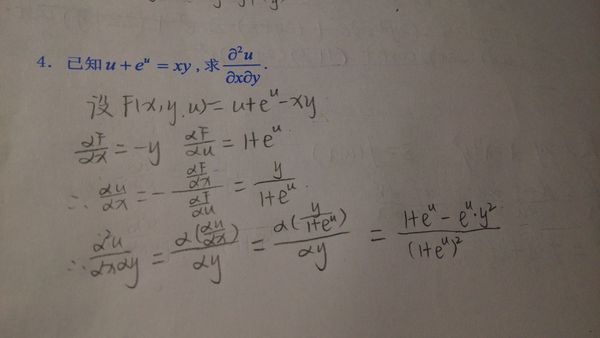 4. 已知 u + e^u = xy , 求 ∂²u/∂x∂y .
设 F(x,y,u)= u+e^u-xy
∂F/∂x = -y ∂F/∂u = 1+e^u
∴ ∂u/∂x = - (∂F/∂x)/(∂F/∂u) = y/(1+e^u)
∴ ∂²u/∂x∂y = ∂(∂u/∂x)/∂y = ∂(y/(1+e^u))/∂y = (1+e^u - e^u·y²)/(1+e^u)²